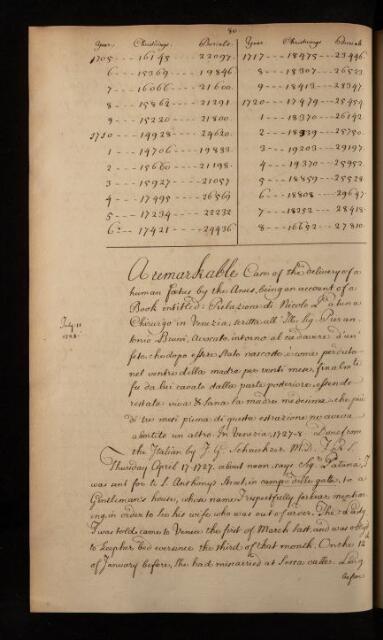 80
Year. Christnings. Burials. Year Christnings Burials
1705 --- 16145 --- 22097. 1717 --- 18475 --- 23446
6 --- 15369 --- 19846 8 --- 18307 --- 26523
7 --- 16066 --- 21600. 9 --- 18413 --- 28347
8 --- 15862 --- 21291 1720 --- 17479 --- 25454
9 --- 15220 --- 21800. 1 --- 18370 --- 26142
1710 --- 14928 --- 24620. 2 --- 18339 --- 25750
1 --- 14706 --- 19833. 3 --- 19203 --- 29197
2 --- 15660 --- 21198. 4 --- 19370 --- 25952
3 --- 15927 --- 21057 5 --- 18859 --- 25523
4 --- 17495 --- 26569 6 --- 18808 --- 29647
5 --- 17234 --- 22232 7 --- 18252 --- 28418
6 --- 17421 --- 24436 8 --- 16652 --- 27810
A remarkable Case of the delivery of a
human fœtus by the Anus, being an account of a
Book entitled: Relazione di Nicolo
July 11
Chirurgo in Venezia, scritta all' Ill. Sig. Pier An-
tonio Bruni, Avocato, intorno al cadavere d'un
feto, che dopo essere stato nascosto
nel ventre della madre per venti mesi, finalmte
fu da lui cavato dalla parte posteriore, essendo
restata viva & sana la madre medesima, che più
di tre mesi piena di questa estrazione ne aveva
abortito un altro. In Venezia, 1727-8. Done from
the Italian by J. G. Scheuchzer M.D. F.R.S.
Thursday April 17. 1727. about noon, says Sigr. Patuna, I
was sent for to S. Anthony's Street, in campo delle gate, to a
Gentleman's house, whose name I respectfully forbear mention-
ing, in order to see his wife who was out of order. The Lady
I was told, came to Venice the first of March last, and was oblig'd
to keep her bed ever since the third of that month. On the 12th
of January before, She had miscarried at some castle. Being
before